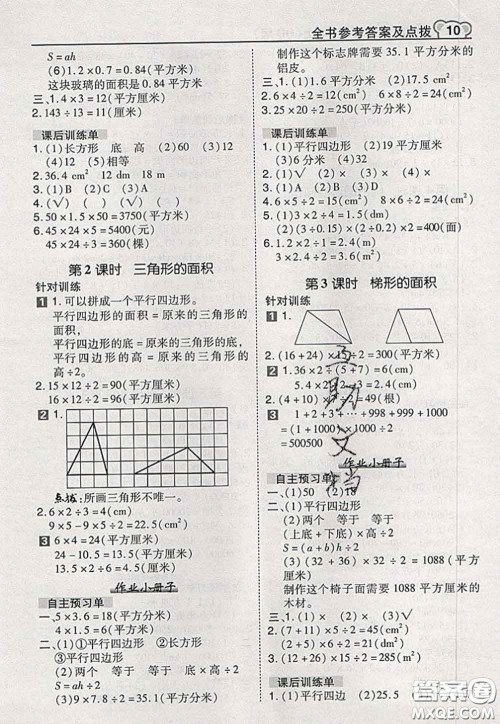 全书参考答案及点拨 10
S=ah
(6)1.2×0.7=0.84(平方米)
这块玻璃的面积是0.84平方米
三、1.4×3=12(平方厘米)
2.143÷13=11(厘米)
课后训练单
一、1.(1)长方形 底 高 (2)60 (3)12
(4)12 (5)相等
2.36.4cm² 12dm 18m
3.(1)B (2)D (3)C
4.(√) (√) (√)
5.50×1.5×50=3750(平方米)
6.45×24×5=5400(元)
45×24÷3=360(棵)
第2课时 三角形的面积
针对训练
1 1.可以拼成一个平行四边形。
平行四边形的面积=原来的三角形的
面积×2
平行四边形的底=原来的三角形的底
平行四边形的高=原来的三角形的高
三角形的面积=平行四边形的底×
高÷2。
2.15×12÷2=90(平方厘米)
16×12÷2=96(平方厘米)
2 1.
点拨:所画三角形不唯一。
2.6×2÷3=4(cm)
9×5-9×5÷2=22.5(cm²)
3 6×7÷2=21(平方厘米)
24-10.5=13.5(平方厘米)
21-10.5=10.5(平方厘米)
作业小册子
自主预习单
一、5×3.6=18(平方分米)
4×1.5=6(平方米)
二、1.(1)平行四边形 (2)①长方形
③平行四边形
2.(2)两个 等于 等于 底×高÷2
S=ah÷2
(3)9×7.8÷2=35.1(平方分米)
制作这个标志牌需要35.1平方分米的
铝皮。
三、1.(1)× (2)× (3)√
2.6×4÷2=12(m²) 6×8÷2=24(m²)
3.25×20÷2=250(平方厘米)
课后训练单
一、1.(1)平行四边形 (2)19平方厘米
(3)6平方米 (4)32
2.(1)√ (2)× (3)× (4)√
3.2×4÷2=4(cm²) 8×6÷2=24(cm²)
4.10×6÷2=30(cm²)
5.1.2×2÷1=2.4(m)
6.3×2÷2.5=2.4(m)
第3课时 梯形的面积
针对训练
1 1.
2.(16+24)×15÷2=300(平方米)
2 1.36×2÷(5+7)=6(cm)
5.4×2÷2-3=2.4(m)
2.(4+10)×7÷2=49(根)
3 1+2+3+…+998+999+1000
=(1+1000)×1000÷2
=500500
作业小册子
自主预习单
一、(1)50 (2)18
二、1.(1)平行四边形
(2)两个 等于 等于
(上底+下底)×高÷2
S=(a+b)h÷2
(3)(32+36)×32÷2=1088(平方
厘米)
制作这个椅子面需要1088平方厘米的
木材。
三、1.(1)× (2)√ (3)×
2.(4+7)×6÷2=33(cm²)
3.(12+26)×15÷2=285(平方米)
课后训练单
一、1.(1)平行四边 (2)25.5
答案圈
MXQE.COM